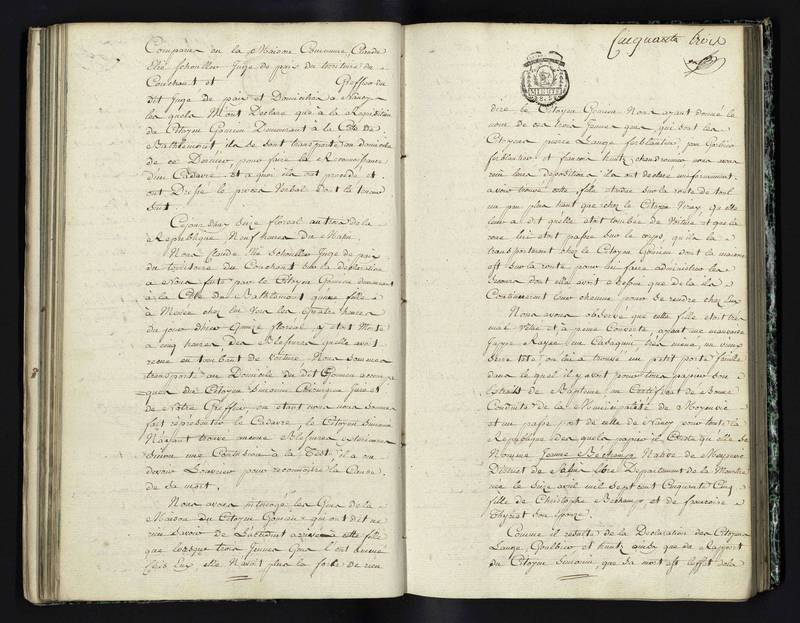 Comparu en la Maison Commune, Claude
Elie Schouller Juge de paix du territoire de
Couchant et Greffier du
dit Juge de paix et Domiciliés à Nancy
les quels M'ont Declaré qu'à la Requisition
du Citoyen Gomien Demeurant à la Côte de
Bathlemont, ils se sont transportés au domicile
de ce Dernier pour faire la Reconnoissance
d'un Cadavre, et a quoi ils ont procédé et
ont Dressé le procès Verbal dont la teneur
suit.
Cejourdhui Seize floreal an trois de la
République Neuf heures du Matin.
Nous Claude Elie Schouller Juge de paix
du territoire du Couchant sur la declaration
a Nous faite par le Citoyen Gomien demeurant
à la Côte de Bathlemont qu'une fille
à Morée chez lui vers les quatre heures
du jour d'hier quinze floreal y etoit Morte
a cinq heures des Blessures qu'elle avoit
recue en tombant de voiture Nous sommes
transporté au Domicile du dit Gomien accompa
gnés du Citoyen Simonin Chirurgien Juré et
de Nôtre Greffier, ou etant nous nous sommes
fait représenter le Cadavre, le Citoyen Simonin
N'ayant trouvé aucune Blessures exterieures
sinon une Contusion à la Tête, il a cru
devoir l'ouvrir pour reconnoitre la Cause
de sa mort.
Nous avons interrogé les Gens de la
Maison du Citoyen Gomien qui ont dit ne
rien savoir de l'accident arrivé à cette fille
que lorsque trois Jeunes Gens l'ont amené
chez lui, elle N'avoit plus la force de rien
Cinquante trois
dire le Citoyen Gomien Nous ayant donné le
nom de ces trois Jeunes gens qui sont les
Citoyens pierre Lange ferblantier, jean
ferblantier et francois hautz chaudronnier nous avons
reçu leurs depositions ils ont declaré uniformement
avoir trouvé cette fille etendue sur la route de toul
un peu plus haut que chez le Citoyen Viray qu'elle
leur a dit qu'elle etoit tombée de voiture et que la
roue lui etoit passée sur le corps, qu'ils la
transporterent chez le Citoyen Gomien dont la maison
est sur la route pour lui faire administrer les
secours dont elle avoit Besoin que de là ils
Continuerent leur chemin pour se rendre chez eux
Nous avons observé que cette fille etoit très
mal vêtue et à peine Couverte, ayant une mauvaise
Juppe Rayée un Casaquin très mince, un vieux
Serre tête on lui a trouvé un petit porte feuille
dans le quel il y avoit pour tous papiers son
Extrait de Baptême, un Certificat de Bonne
Conduite de la Municipalité de Moyenvic
et un passe port de celle de Nancy pour toute la
République des quels papiers il Conste qu'elle se
Nomme Jeanne Bechamp Native de Moyenvic
District de Salin libre Departement de la Meurthe
née le Seize avril mil Sept cent Cinquante Cinq
fille de Christophe Bechamp, et de francoise
Thyriet son epouse.
Comme il resulte de la Declaration des Citoyens
Lange et hautz ainsi que de Rapport
du Citoyen Simonin, que sa mort est l'effet de la